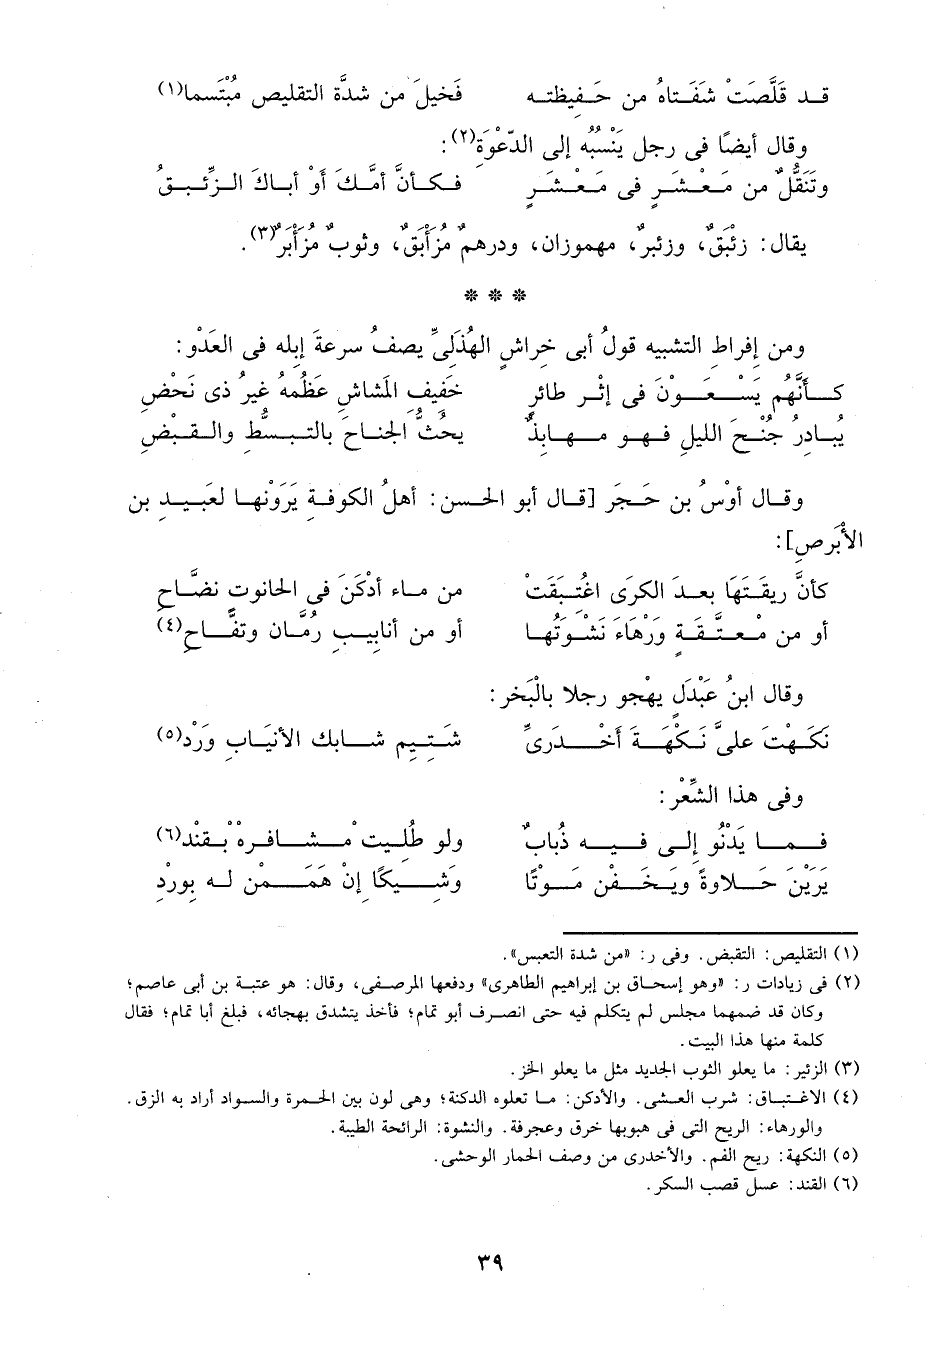 قد قَلَّصَتْ شَفَتاهُ من حَفيظتِه فَخِيلَ من شدَّة التقليص مُبْتَسما(١)
وقال أيضًا فى رجل يَنْسُبُه إلى الدِّعْوَة(٢):
وتَنَقُّلٍ من مَعْشَرٍ فى مَعْشَرٍ فكأنَّ أمَّكَ أوْ أباكَ الزِّئبقُ
يقال: زئبَقٌ، وزئبرٌ، مهموزان، ودرهمٌ مُزَأْبَقٌ، وثوبٌ مُزَأْبَرٌ(٣).
* * *
ومن إفراط التشبيه قولُ أبى خراشٍ الهُذَلىِّ يصفُ سرعةَ إبله فى العَدْو:
كأنَّهُم يَسْعَوْنَ فى إثْرِ طائرٍ خفيفِ المُشاش عَظْمُهُ غيرُ ذى نَحْضِ
يُبادرُ جُنْحَ الليل فهو مهابِذٌ يحثُّ الجناحَ بالتبسُّط والقَبْضِ
وقال أوْسُ بن حَجَرٍ [قال أبو الحسن: أهلُ الكوفة يَرْوُنها لعَبِيد بن
الأبْرصِ]:
كأنَّ ريقَتَهَا بعدَ الكَرَى اغْتَبَقَتْ من ماء أدْكَنَ فى الحانوت نضَّاحِ
أو من مُعتَّقةٍ وَرْهَاءَ نَشْوَتُها أو من أنابيبِ رُمَّان وتفَّاحِ(٤)
وقال ابنُ عَبْدَلٍ يهجو رجلا بالْبَخر:
نَكَهْتَ علىَّ نَكْهَةَ أخْدَرىٍّ شَتيمٍ شابك الأنيابِ وَرْدِ(٥)
وفى هذا الشِّعْر:
فما يَدْنُو إلى فيه ذُبابٌ ولو طُلِيت مْشافرُه بقَنْدِ(٦)
يَرَيْنَ حَلاوةً ويَخَفْن مَوْتًا وَشيكًا إنْ هَمَمْن له بورْدِ
(١) التقليص: التقبض. وفى ر: «من شدة التعبس».
(٢) فى زيادات ر: «وهو إسحاق بن إبراهيم الطاهرى» ودفعها المرصفى، وقال: هو عتبة بن أبى عاصم؛
وكان قد ضمهما مجلس لم يتكلم فيه حتى انصرف أبو تمام؛ فأخذ يتشدق بهجائه، فبلغ أبا تمام؛ فقال
كلمة منها هذا البيت.
(٣) الزئير: ما يعلو الثوب الجديد مثل ما يعلو الخز.
(٤) الاغتباق: شرب العشى. والأدكن: ما تعلوه الدكنة؛ وهى لون بين الحمرة والسواد أراد به الزق.
والورهاء: الريح التى فى هبوبها خرق وعجرفة. والنشوة: الرائحة الطيبة.
(٥) النكهة: ريح الفم. والأخدرى من وصف الحمار الوحشى.
(٦) القند: عسل قصب السكر.
٣٩